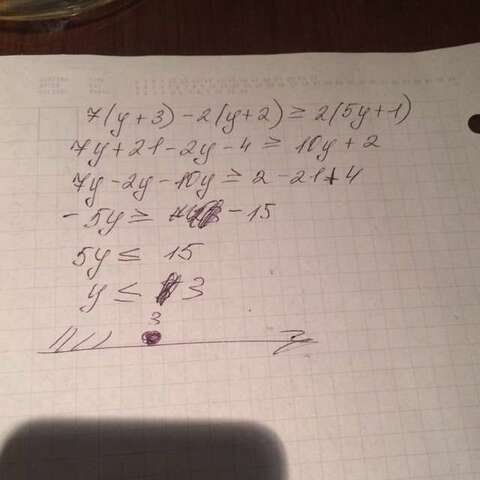 7(y+3)-2(y+2)≥2(5y+1)
7y+21-2y-4≥10y+2
7y-2y-10y≥2-21+4
-5y≥-15
5y≤15
y≤3
3